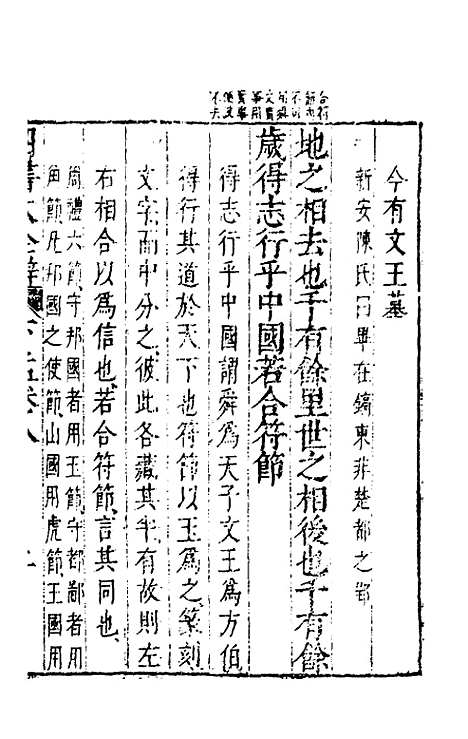 今有文王墓
新安陳氏曰畢在鎬東非楚都之郢
地之相去也千有餘里世之相後也千有餘
歲得志行乎中國若合符節
得志行乎中國謂舜為天子文王為方伯
得行其道於天下也符節以玉為之篆刻
文字而中分之彼此各藏其半有故則左
右相合以為信也若合符節言其同也
周禮六節守邦國者用玉節守都鄙者用
角節凡邦國之使節山國用虎節王國用